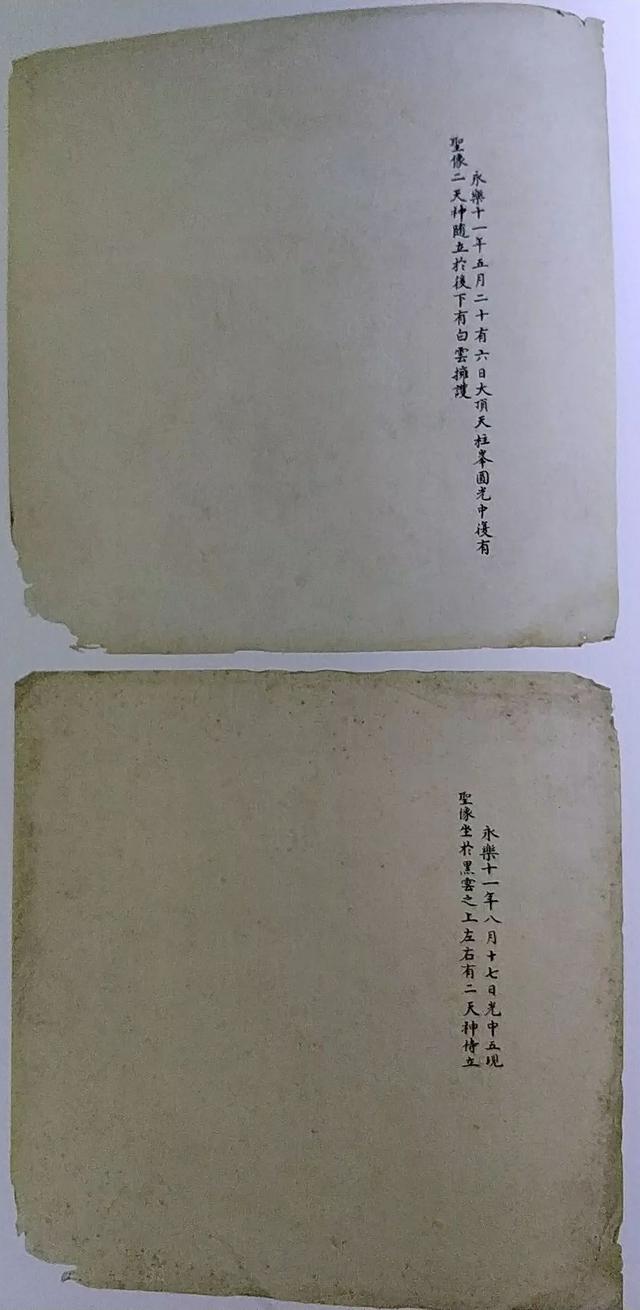 永樂十一年五月二十有六日大頂天柱峯圓光中復有
聖像二天神隨立於後下有白雲擁護
永樂十一年八月十七日光中五現
聖像坐於黑雲之上左右有二天神侍立